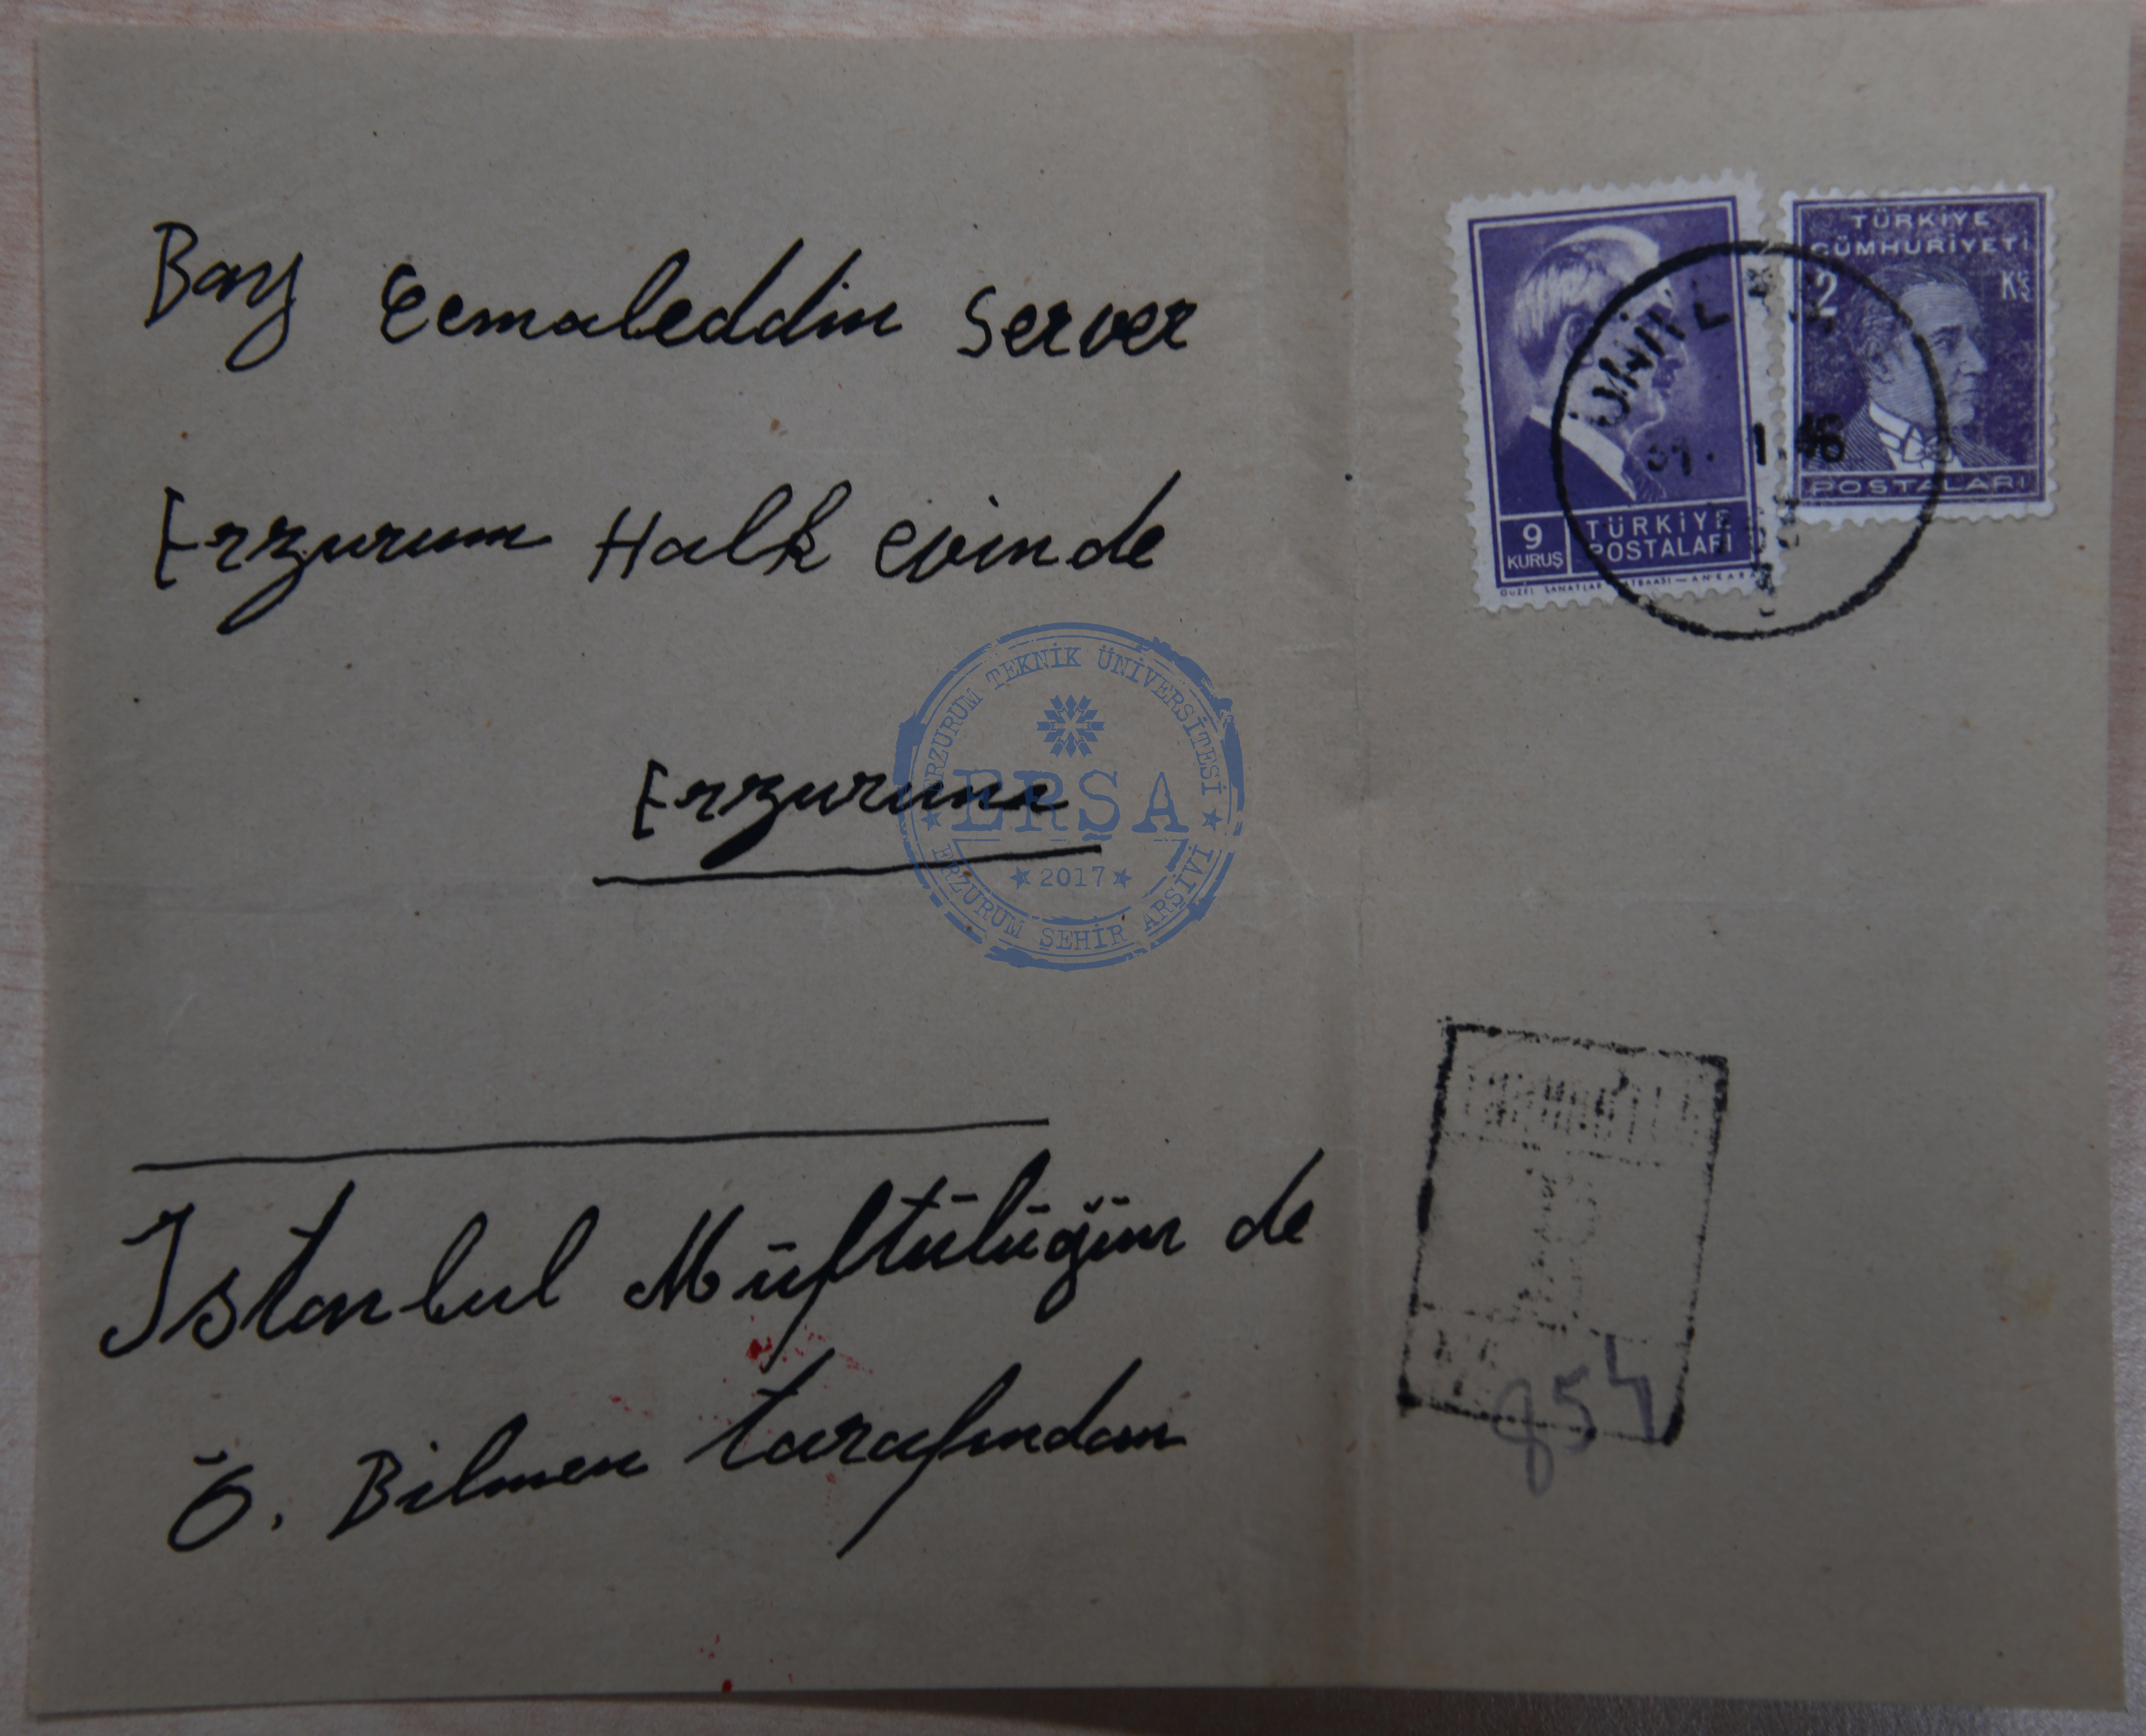 Bay Cemaleddin Server
Erzurum Halk evinde
Erzurum
İstanbul Müftülüğün de
Ö. Bilmen tarafından
9
KURUŞ
TÜRKİYE
POSTALARI
GÜZEL SANATLAR MATBAASI — ANKARA
TÜRKİYE
CÜMHURİYETİ
2 Kş
POSTALARI
1.46
ERZURUM TEKNİK ÜNİVERSİTESİ
ERŞA
2017
ERZURUM ŞEHİR ARŞİVİ
854